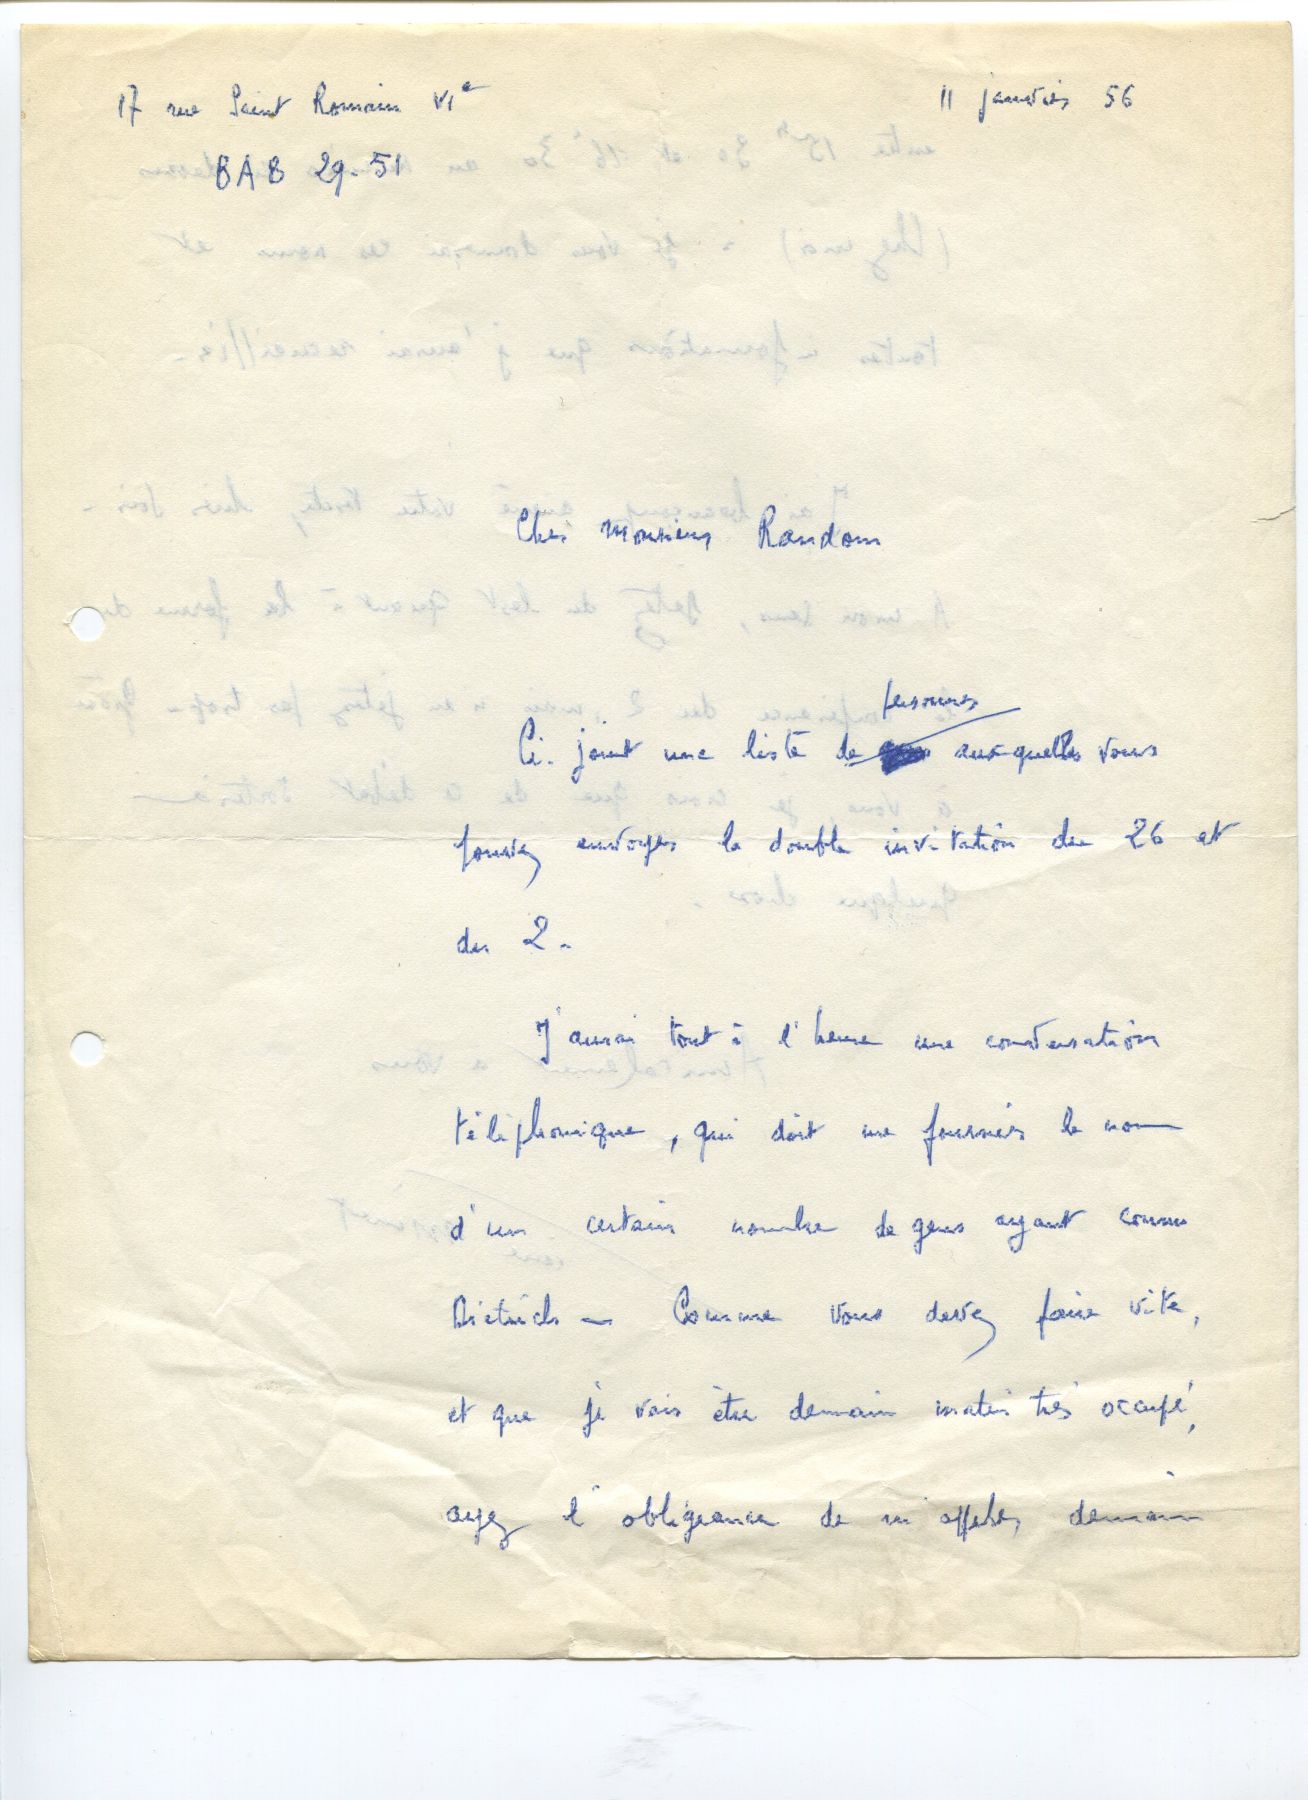 17 rue Saint Romain VIe
11 janvier 56
BAB 29-51
Cher Monsieur Random
personnes
Ci-joint une liste de auxquelles vous
pouvez envoyer la double invitation du 26 et
du 2 -
J'aurai tout à l'heure une conversation
téléphonique, qui doit me fournir le nom
d'un certain nombre de gens ayant connu
Dietrich - Comme vous devez faire vite,
et que je vais être demain matin très occupé,
ayez l'obligeance de m'appeler demain